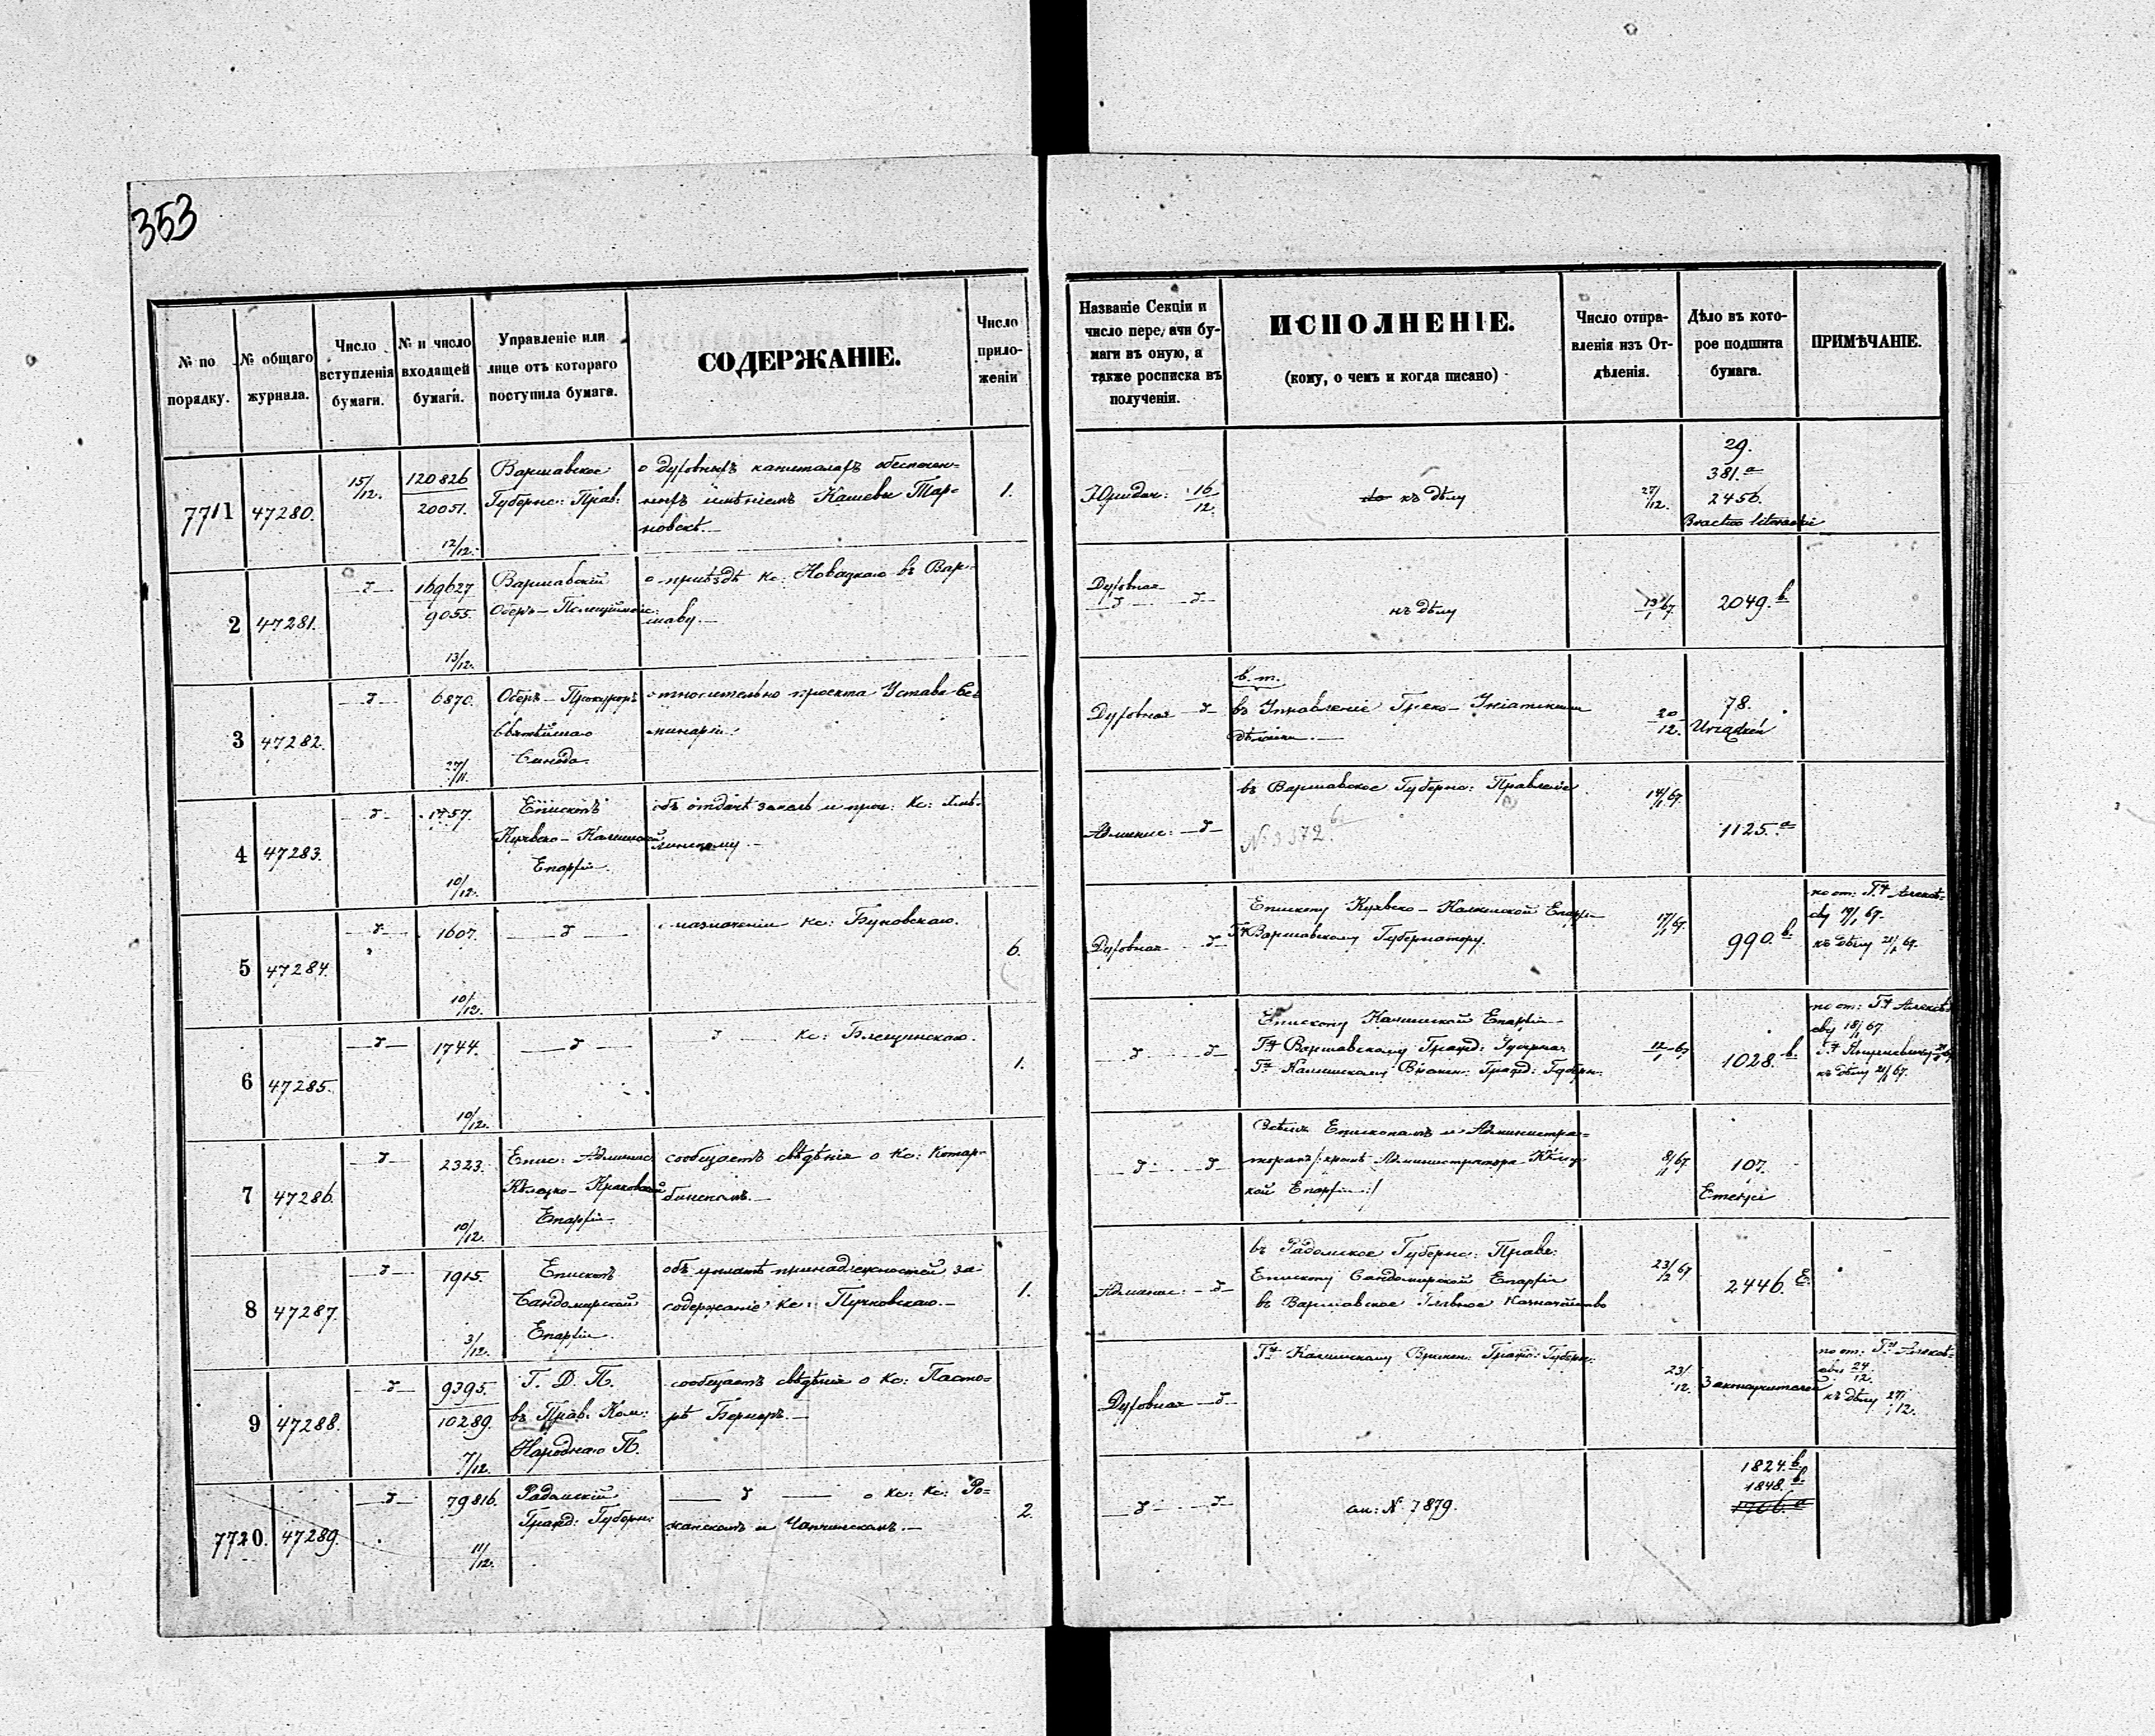 353
№ по порядку.
№ общаго журнала.
Число вступленія бумаги.
№ и число входящей бумаги.
Управленіе или лице отъ котораго поступила бумага.
СОДЕРЖАНІЕ.
Число приложеній
Названіе Секціи и число передачи бумаги въ оную, а также росписка въ полученіи.
ИСПОЛНЕНІЕ.
(кому, о чемъ и когда писано)
Число отправленія изъ Отдѣленія.
Дѣло въ которое подшита бумага.
ПРИМѢЧАНІЕ.
7711 47280. 15/12. 120826
20051.
12/12.
Варшавское
Губернс: Прав:
о духовныхъ капиталахъ обеспечен-
ныхъ имѣніемъ Кашевы Тар-
новскѣ.
1.
Юридич: 16/12.
къ дѣлу
27/12.
29.
381.a
2456.
Bractwo literackie
2 47281. 169627
9055.
13/12.
Варшавскій
Оберъ-Полицiймейс:
о пріѣздѣ Кс: Новацкаго въ Вар-
шаву.
Духовная
къ дѣлу
13/1 67.
2049.b.
3 47282. 6870.
27/11.
Оберъ-Прокуроръ
Святѣйшаго
Синода.
относительно проекта Устава Се-
минаріи.
Духовная
в. т.
въ Управленіе Греко-Уніатскими
дѣлами.
20/12.
78.
Urządzeń
4 47283. 1757.
10/12.
Епископъ
Куявско-Калишской
Епархіи.
объ отдачѣ земель и проч: Кс:
Админис:
въ Варшавское Губернс: Правленіе.
№ 3572.b
14/1 67.
1125.a
5 47284. 1607.
10/12.
о назначеніи Кс: Буковскаго.
6.
Духовная
Епископу Куявско-Калишской Епархіи
Гну Варшавскому Губернатору.
17/1 67.
990.b.
къ дѣлу 21/1 67.
6 47285. 1744.
10/12.
Кс: Блещинскаго.
1.
Епископу Калишской Епархіи
Гну Варшавскому Гражд: Губерна:
Гну Калишскому Воен: Гражд: Губерн:
12/1 67
1028.b.
къ дѣлу 21/1 67.
7 47286. 2323.
10/12.
Епис: Админис:
Кѣлецко-Краковской
Епархіи
сообщаетъ свѣдѣнія о Кс: Котар-
бинскомъ.
Всѣмъ Епископамъ и Администра-
торамъ/:кромѣ Администратора Кѣлец
кой Епархіи:/
8/1 67
107.
Emeryci
8 47287. 1915.
3/12.
Епископъ
Сандомирской
Епархіи.
объ уплатѣ принадлежностей за
содержаніе Кс: Пучковскаго.
1.
Админис:
въ Радомское Губернс: Правл:
Епископу Сандомирской Епархіи
въ Варшавское Главное Казначейство
23/2 67
2446.E.
9 47288. 9395.
10289.
7/12.
Г. Д. П.
въ Прав: Ком:
Народнаго П.
сообщаетъ свѣдѣнія о Кс: Пасто-
рѣ Бернеръ.
Духовная
Гну Калишскому Гражд: Губерн:
23/12.
Законоучителей
24/12.
къ дѣлу 27/12.
7720. 47289. 79816.
11/12.
Радомскій
Гражд: Губерн:
о Кс: Кс: Ро-
жанскомъ и Чапчинскомъ.
2.
см: № 7879.
1824.b.
1848.b.
1766.a